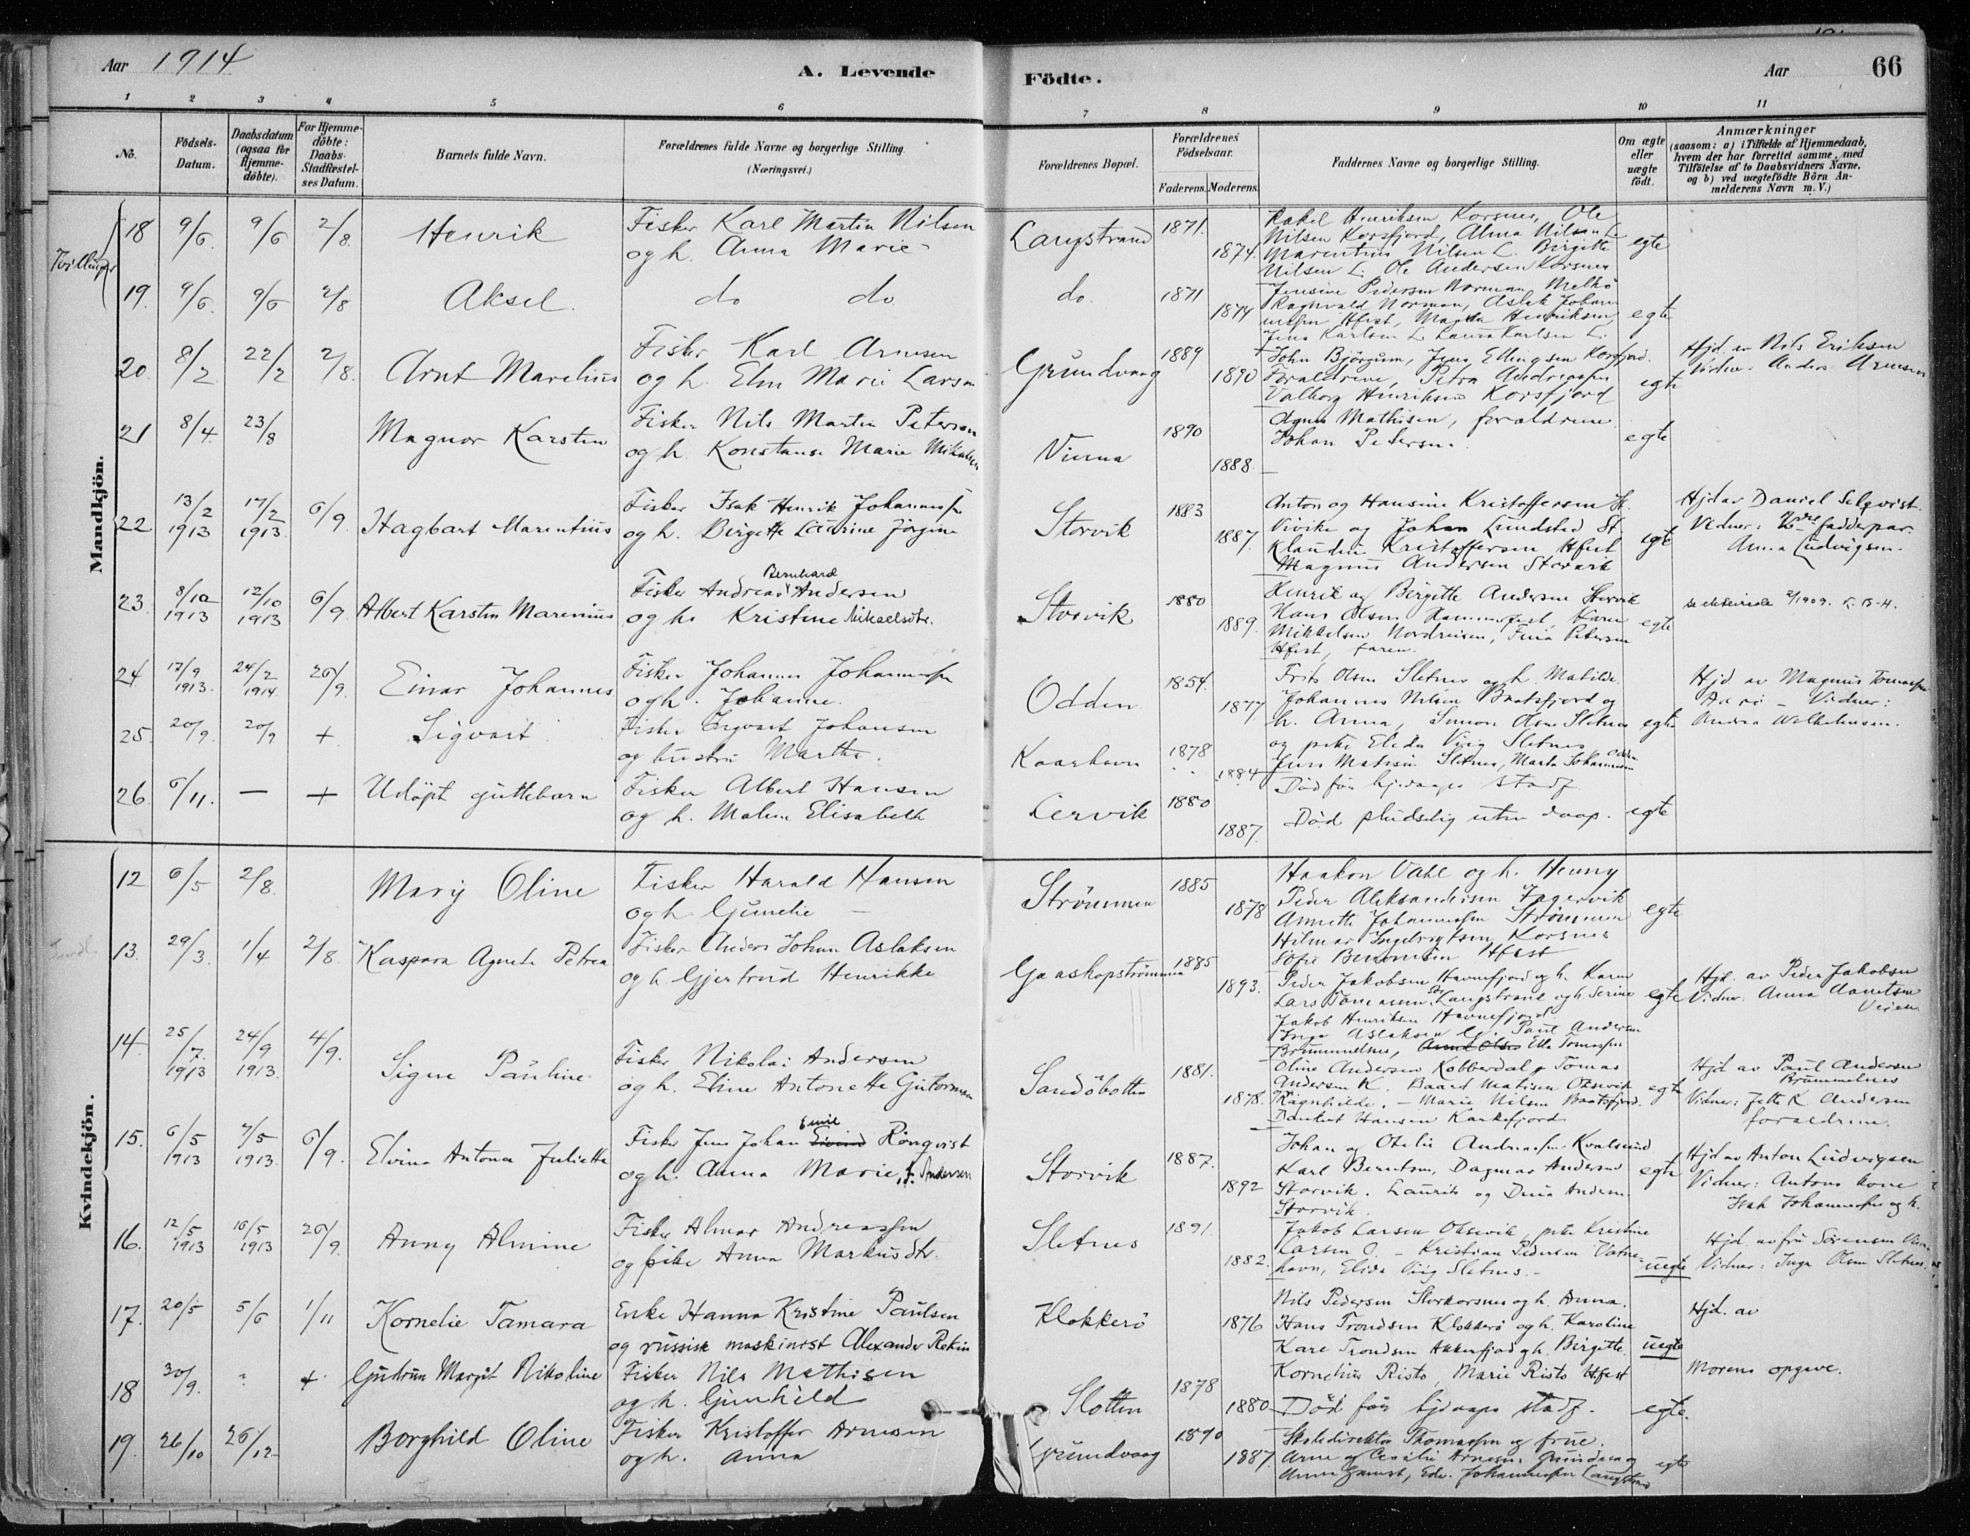 Aar 1914 A. Levende Födte. Aar 66
1 2 3 4 5 6 7 8 9 10 11
No.
Födsels-Datum.
Daabsdatum (ogsaa for Hjemme-döbte).
For Hjemme-döbte: Daabs-Stadfæstel-ses Datum.
Barnets fulde Navn.
Forældrenes fulde Navne og borgerlige Stilling. (Næringsvei.)
Forældrenes Bopæl.
Forældrenes Födselsaar.
Faderens. Moderens.
Faddernes Navne og borgerlige Stilling.
Om ægte eller uægte födt.
Anmærkninger
(saasom: a) i Tilfælde af Hjemmedaab,
hvem der har forrettet samme, med
Tilföielse af to Daabsvidners Navne,
og b) ved uægtefödte Börn An-
melderens Navn m. V.)
Mandkjön.
Tvillinger
18 9/6 9/6 2/8 Henrik Fisker Karl Martin Nilsen
og h. Anna Marie
Langstrand 1871. 1874.
Rakel Henriksen Korsnes, Ole
Nilsen Korsfjord, Alma Nilsen L.
Marentius Nilsen L. Birgitte
Nilsen L. Ole Andersen Korsnes
egte
19. 9/6 9/6 2/8 Aksel. do do
do. 1871 1874
Jensine Pedersen Norman Melkö
Ragnvald Norman, Aslak Johan-
nessen Hfest, Magda Henriksen,
Jens Karlsen L. Laura Karlsen L.
egte
20. 8/2 22/2 2/8. Arnt Marelius Fisker Karl Arnesen
og h. Elen Marie Larsen
Grundvaag 1889 1890
John Björgum, Jens Ellingsen Korsfjord.
Foraldrene, Petra Andreassen
Valborg Henriksen Korsfjord
egte
Hjd. av Nils Eriksen
Vidne: Anders Arnesen
21 8/4 23/8 Magnor Karsten Fisker Nils Martin Petersen
og h. Konstanse Marie Mikalsen
Vinna 1890 1888
Agnes Mathisen, foraldrene
Johan Petersen.
egte
22 13/2 1913 17/2 1913. 6/9. Hagbart Marentius Fisker Isak Henrik Johannessen
og h. Birgitte Laurine Jörgine
Storvik 1883 1887.
Anton og Hansine Kristoffersen St.
Vivike og Johan Lundsted St.
Klaudius Kristoffersen Hfest
Magnus Andersen Storvik
egte
Hjd av Daniel Selqvist.
Vidner: fadderpar.
Anna Ludvigsen.
23. 8/10 1913 12/10 1913 6/9. Albert Karsten Marenius Fisker Andreas Bernhard Andersen
og h. Kristine Mikaelsdtr.
Storvik 1880 1889.
Henrik og Birgitte Andersen Storvik
Hans Olsen Hammerfest, Karen
Mikkelsen Nordreisen, Petersen
Hfest, faren.
egte
24 17/9 1913. 24/2 1914. 26/9. Einar Johannes Fisker Johannes Johannessen
og h. Johanne.
Odden 1854. 1877
Frits Olsen Sletnes og h. Matilde
Johannes Nilsen Baatsfjord og
h. Anna, Simon Olsen Sletnes
og pike Elida Viig Sletnes
egte
Hjd av Magnus Tomassen
Vidner:
Andrea Wilhelmsen.
25. 20/9. 20/9 + Sigvart Fisker Ingvart Johansen
og hustru Marthe.
Kaarhavn 1878 1884
Jens Matisen Sletnes, Marta Johannesen Odden
Död før hj.daapens stadf
26. 6/11. — + Udöpt guttebarn Fisker Albert Hansen
og h. Malene Elisabeth
Lervik 1880 1887.
Död pludselig uten daap.
egte
Kvindekjön.
12 6/5 2/8. Mary Oline Fisker Harald Hansen
og h. Gunelie
Strömmen 1885 1878
Haakon Vahl og h. Henny
Peder Aleksandersen Fagervik
Annette Johannessen Strömmen
Hilmar Ingebrigtsen Korsnes
Sofie Hfest
egte
13. 29/3. 1/4 2/8. Kaspara Agneta Petrea Fisker Anders Johan Aslaksen
og h Gjertrud Henrikke
Gaashopströmmen 1885 1893.
Peder Jakobsen Havnefjord og h. Karen
Lars Tomassen Langstrand og h. Serine
Jakob Henriksen Havnefjord.
Inga Aslaksen G. Paul Andersen
egte
Hjd. av Peder Jakobsen
Vidner: Anna
14. 25/7 1913 24/9 1913. 4/9. Signe Pauline Fisker Nikolai Andersen
og h. Eline Antonette Gutormsen
Sandöbotten 1881. 1878.
Brummelnes, Ella Tomassen
Oline Andersen Kobberdal, Tomas
Andersen K. Baard Matisen Oksevik
Ragnhilde. – Marie Nilsen Baatsfjord.
Hansen Kaarhefjord
egte
Hjd av Paul Andersen
Brummelnes
Vidner: Andersen
foraldrene.
15. 6/5 1913 7/5 1913. 6/9. Elvina Antona Juliette Fisker Jens Johan Emil Rönqvist
og h. Anna Marie, f. Andersen
Storvik 1887. 1892
Johan og Otelie Andreassen Kvalsund
Karl Berntsen, Dagmar Andersen
Storvik. Laurits og Dina Andersen
Storvik.
egte
Hjd av Anton Ludvigsen
Vidner: Antons kone
Isak Johannessen og h.
16. 12/5 1913 16/5 1913 26/9. Anny Almine Fisker Almar Andreassen
og pike Anna Markusdtr.
Sletnes 1891. 1882.
Jakob Larsen Oksevik, pike Kristine
Larsen O. – Kristian Pedersen Vatne-
havn, Elida Viig Sletnes. –
uegte
Hjd. av fru Sörensen
Vidner: Inga Olsen Sletnes.
17. 20/5 5/6 1/11 Kornelie Tamara Enke Hanna Kristine Paulsen
og russisk maskinist Alexander Rekin
Klokkerö 1876
Nils Pedersen Storkorsnes og h. Anna.
Hans Trondsen Klokkerö og h. Karoline
Kare Trondsen Akkerfjord og h. Birgitte.
Kornelius Risto, Marie Risto Hfest
uegte
Hjd. av
Morens opgave.
18 30/9. + Gudrun Margit Nikoline Fisker Nils Mathisen
og h. Gunhild
Slotten 1878 1880
Död før hjdaaps stadf.
egte.
19. 26/10 26/12 Borghild Oline Fisker Kristoffer Arnesen
og h. Anna
Grundvaag 1890 1887
Skoledirektör Thomassen og frue.
Arne og Cesilie Arnesen Grundvaag
Anna Gamst, Edv. Johannessen Langstrand
egte